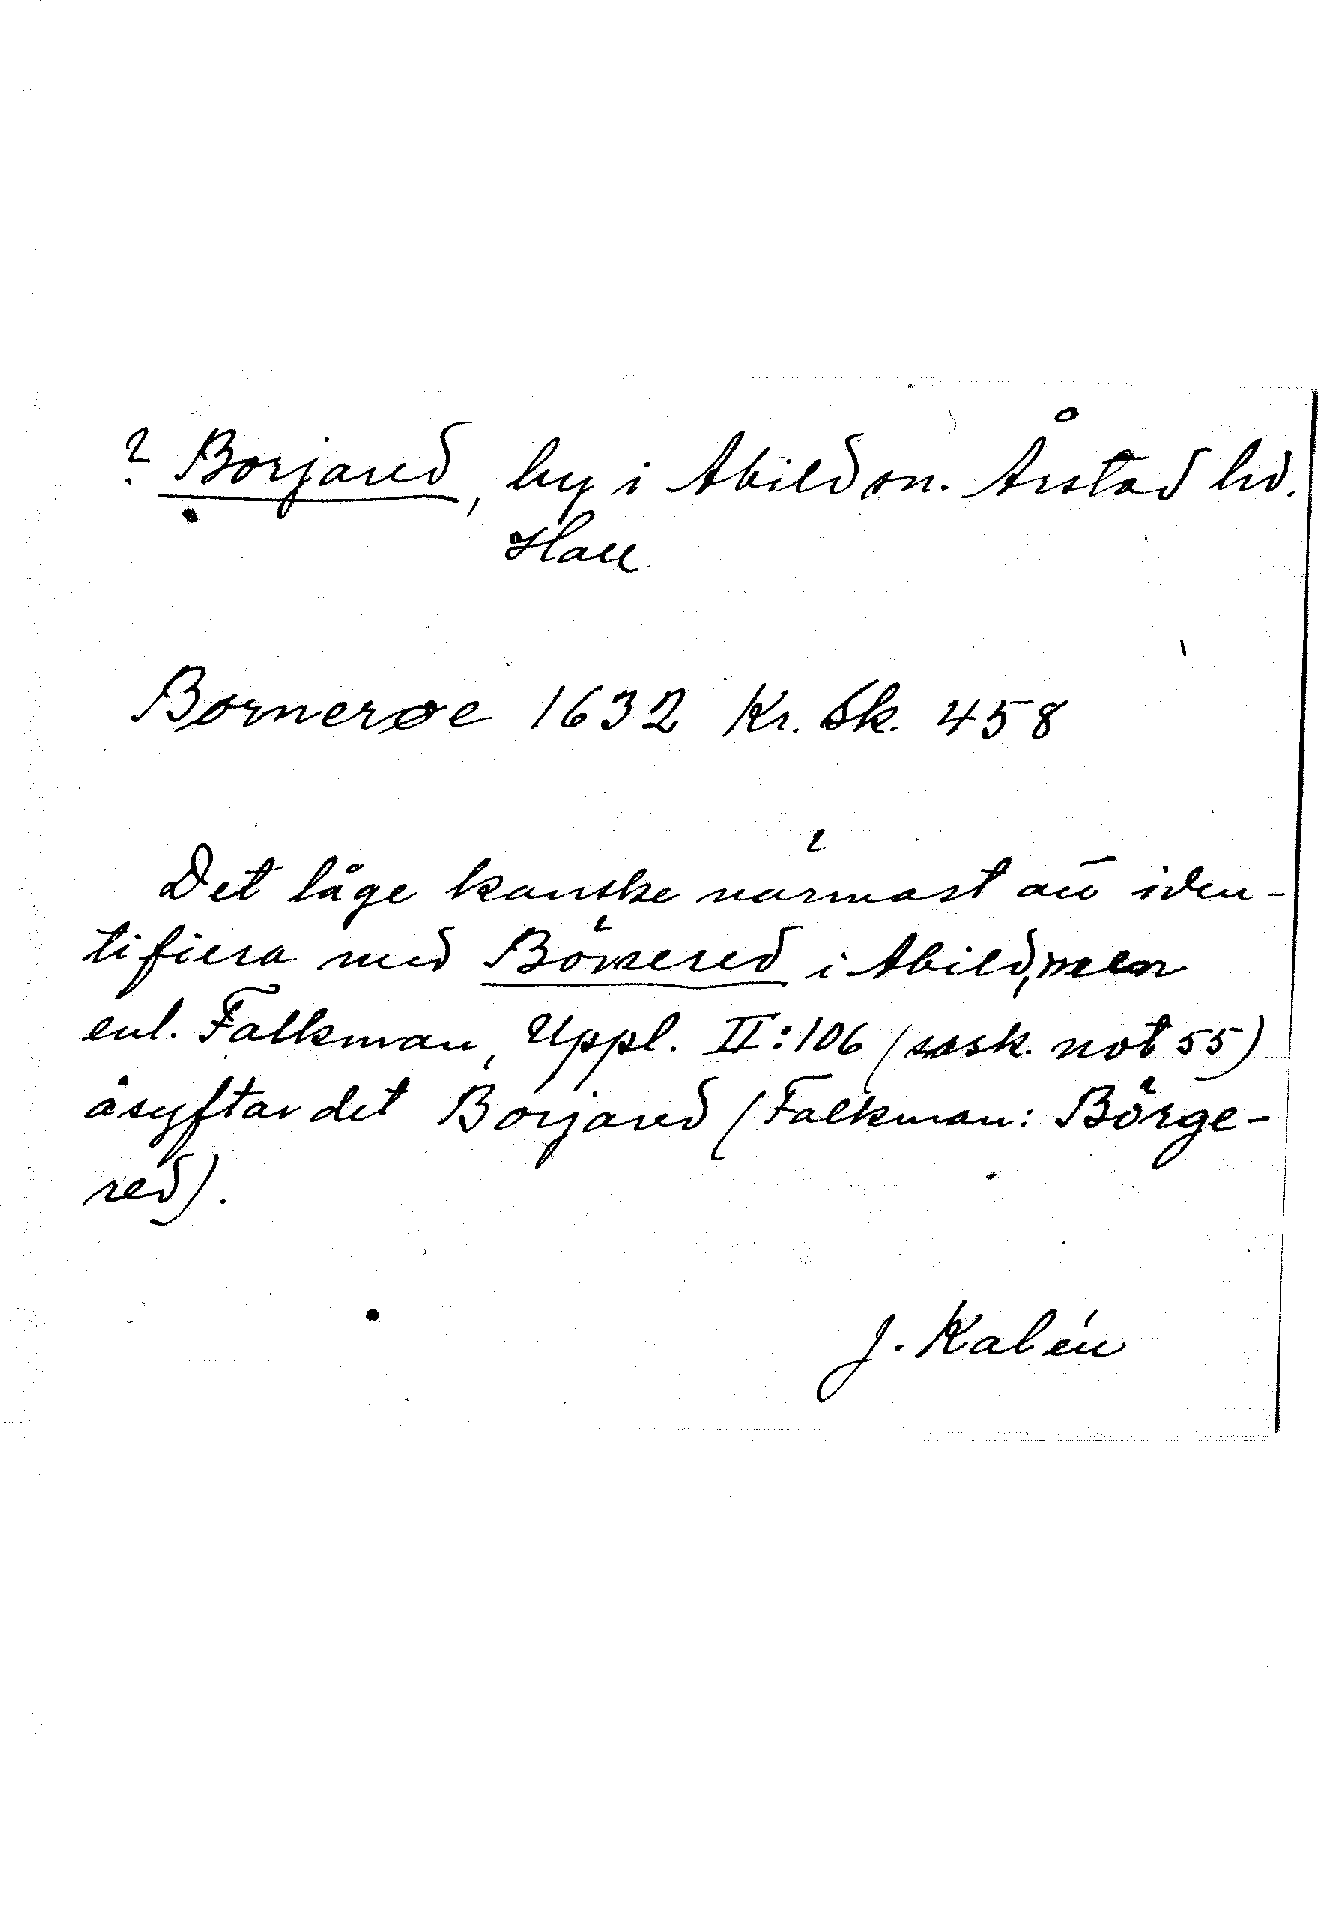 ? Borjared, by i Abild sn. Årstad hd.
Hall
Bornerøe 1632 Kr. Sk. 458
Det låge kanske närmast att iden-
tifiera med Börsered i Abild, men
enl. Falkman, Uppl. II:106 (särsk. not 55)
åsyftar det Borjared (Falkman: Börge-
red).
J. Kalén